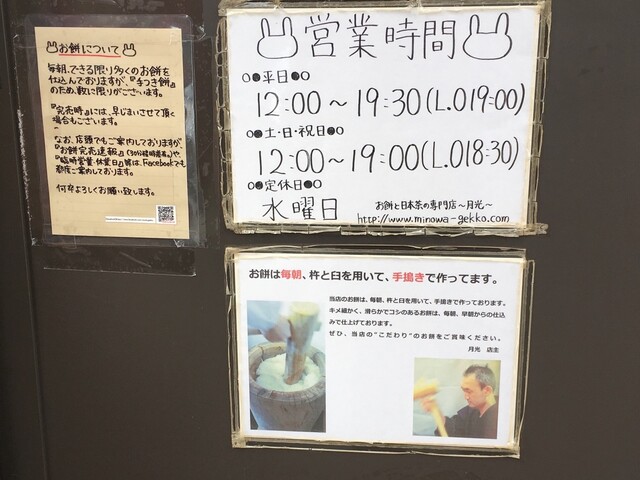 お餅について
毎朝、できる限り多くのお餅を
仕込んでおりますが、『手つき餅』
のため、数に限りがございます。
『完売時』には、早じまいさせて頂く
場合もございます。
なお、店頭でもご案内しておりますが、
『お餅完売速報』
『臨時営業・休業日』等は、Facebookでも
都度ご案内しております。
何卒よろしくお願い致します。
営業時間
○●平日●○
12:00～19:30(L.O19:00)
○●土・日・祝日●○
12:00～19:00(L.O18:30)
○●定休日●○
水曜日
お餅と日本茶の専門店～月光～
http://www.minowa-gekko.com
お餅は毎朝、杵と臼を用いて、手搗きで作ってます。
当店のお餅は、毎朝、杵と臼を用いて、手搗きで作っております。
キメ細かく、滑らかでコシのあるお餅は、毎朝、早朝からの仕込
みで仕上げております。
ぜひ、当店の"こだわり"のお餅をご賞味ください。
月光 店主